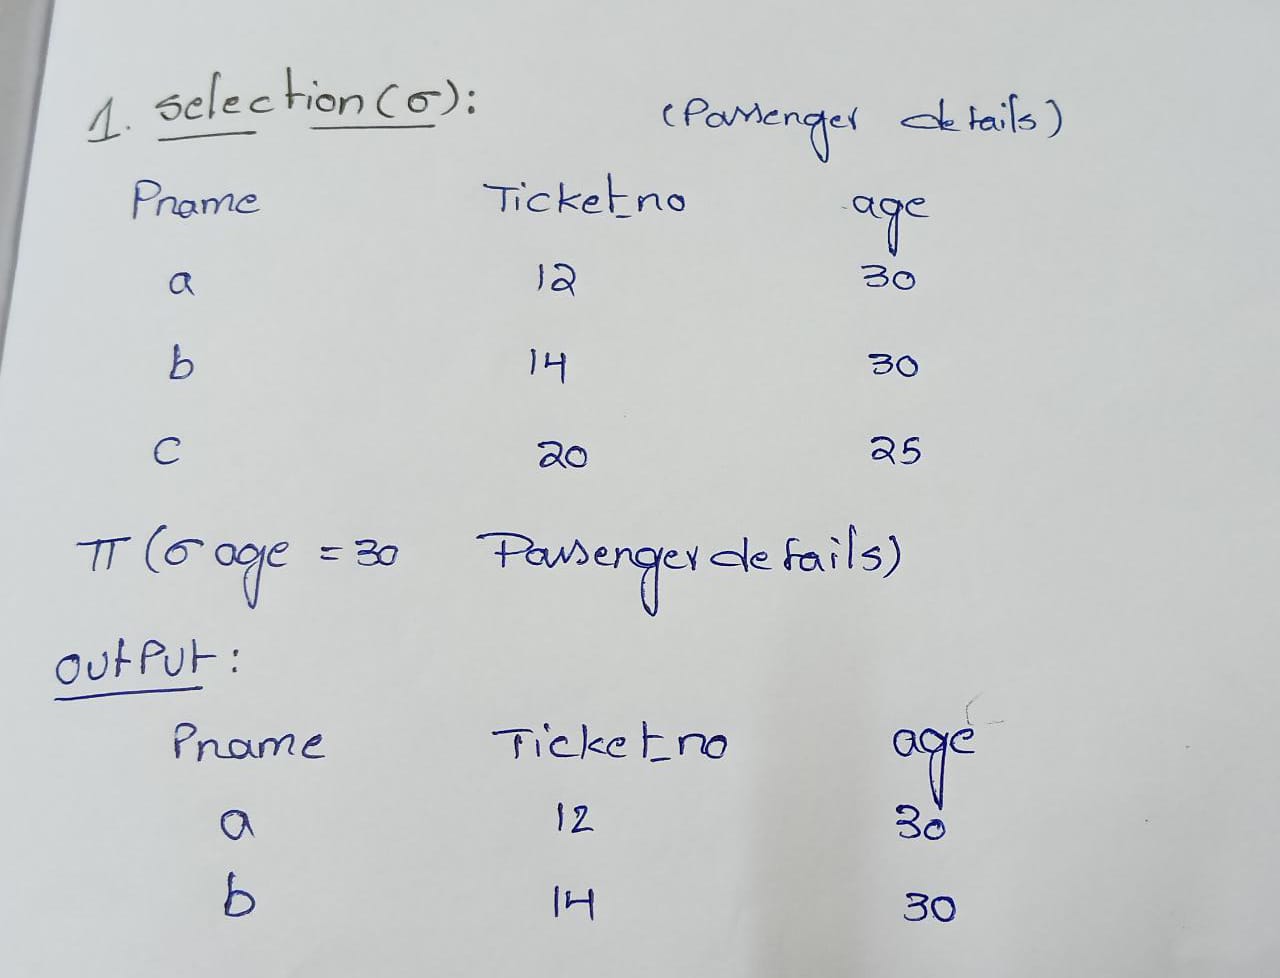 1. selection(σ): (Passenger details)
Pname Ticket_no age
a 12 30
b 14 30
c 20 25
π (σ age = 30 Passenger details)
output:
Pname Ticket_no age
a 12 30
b 14 30